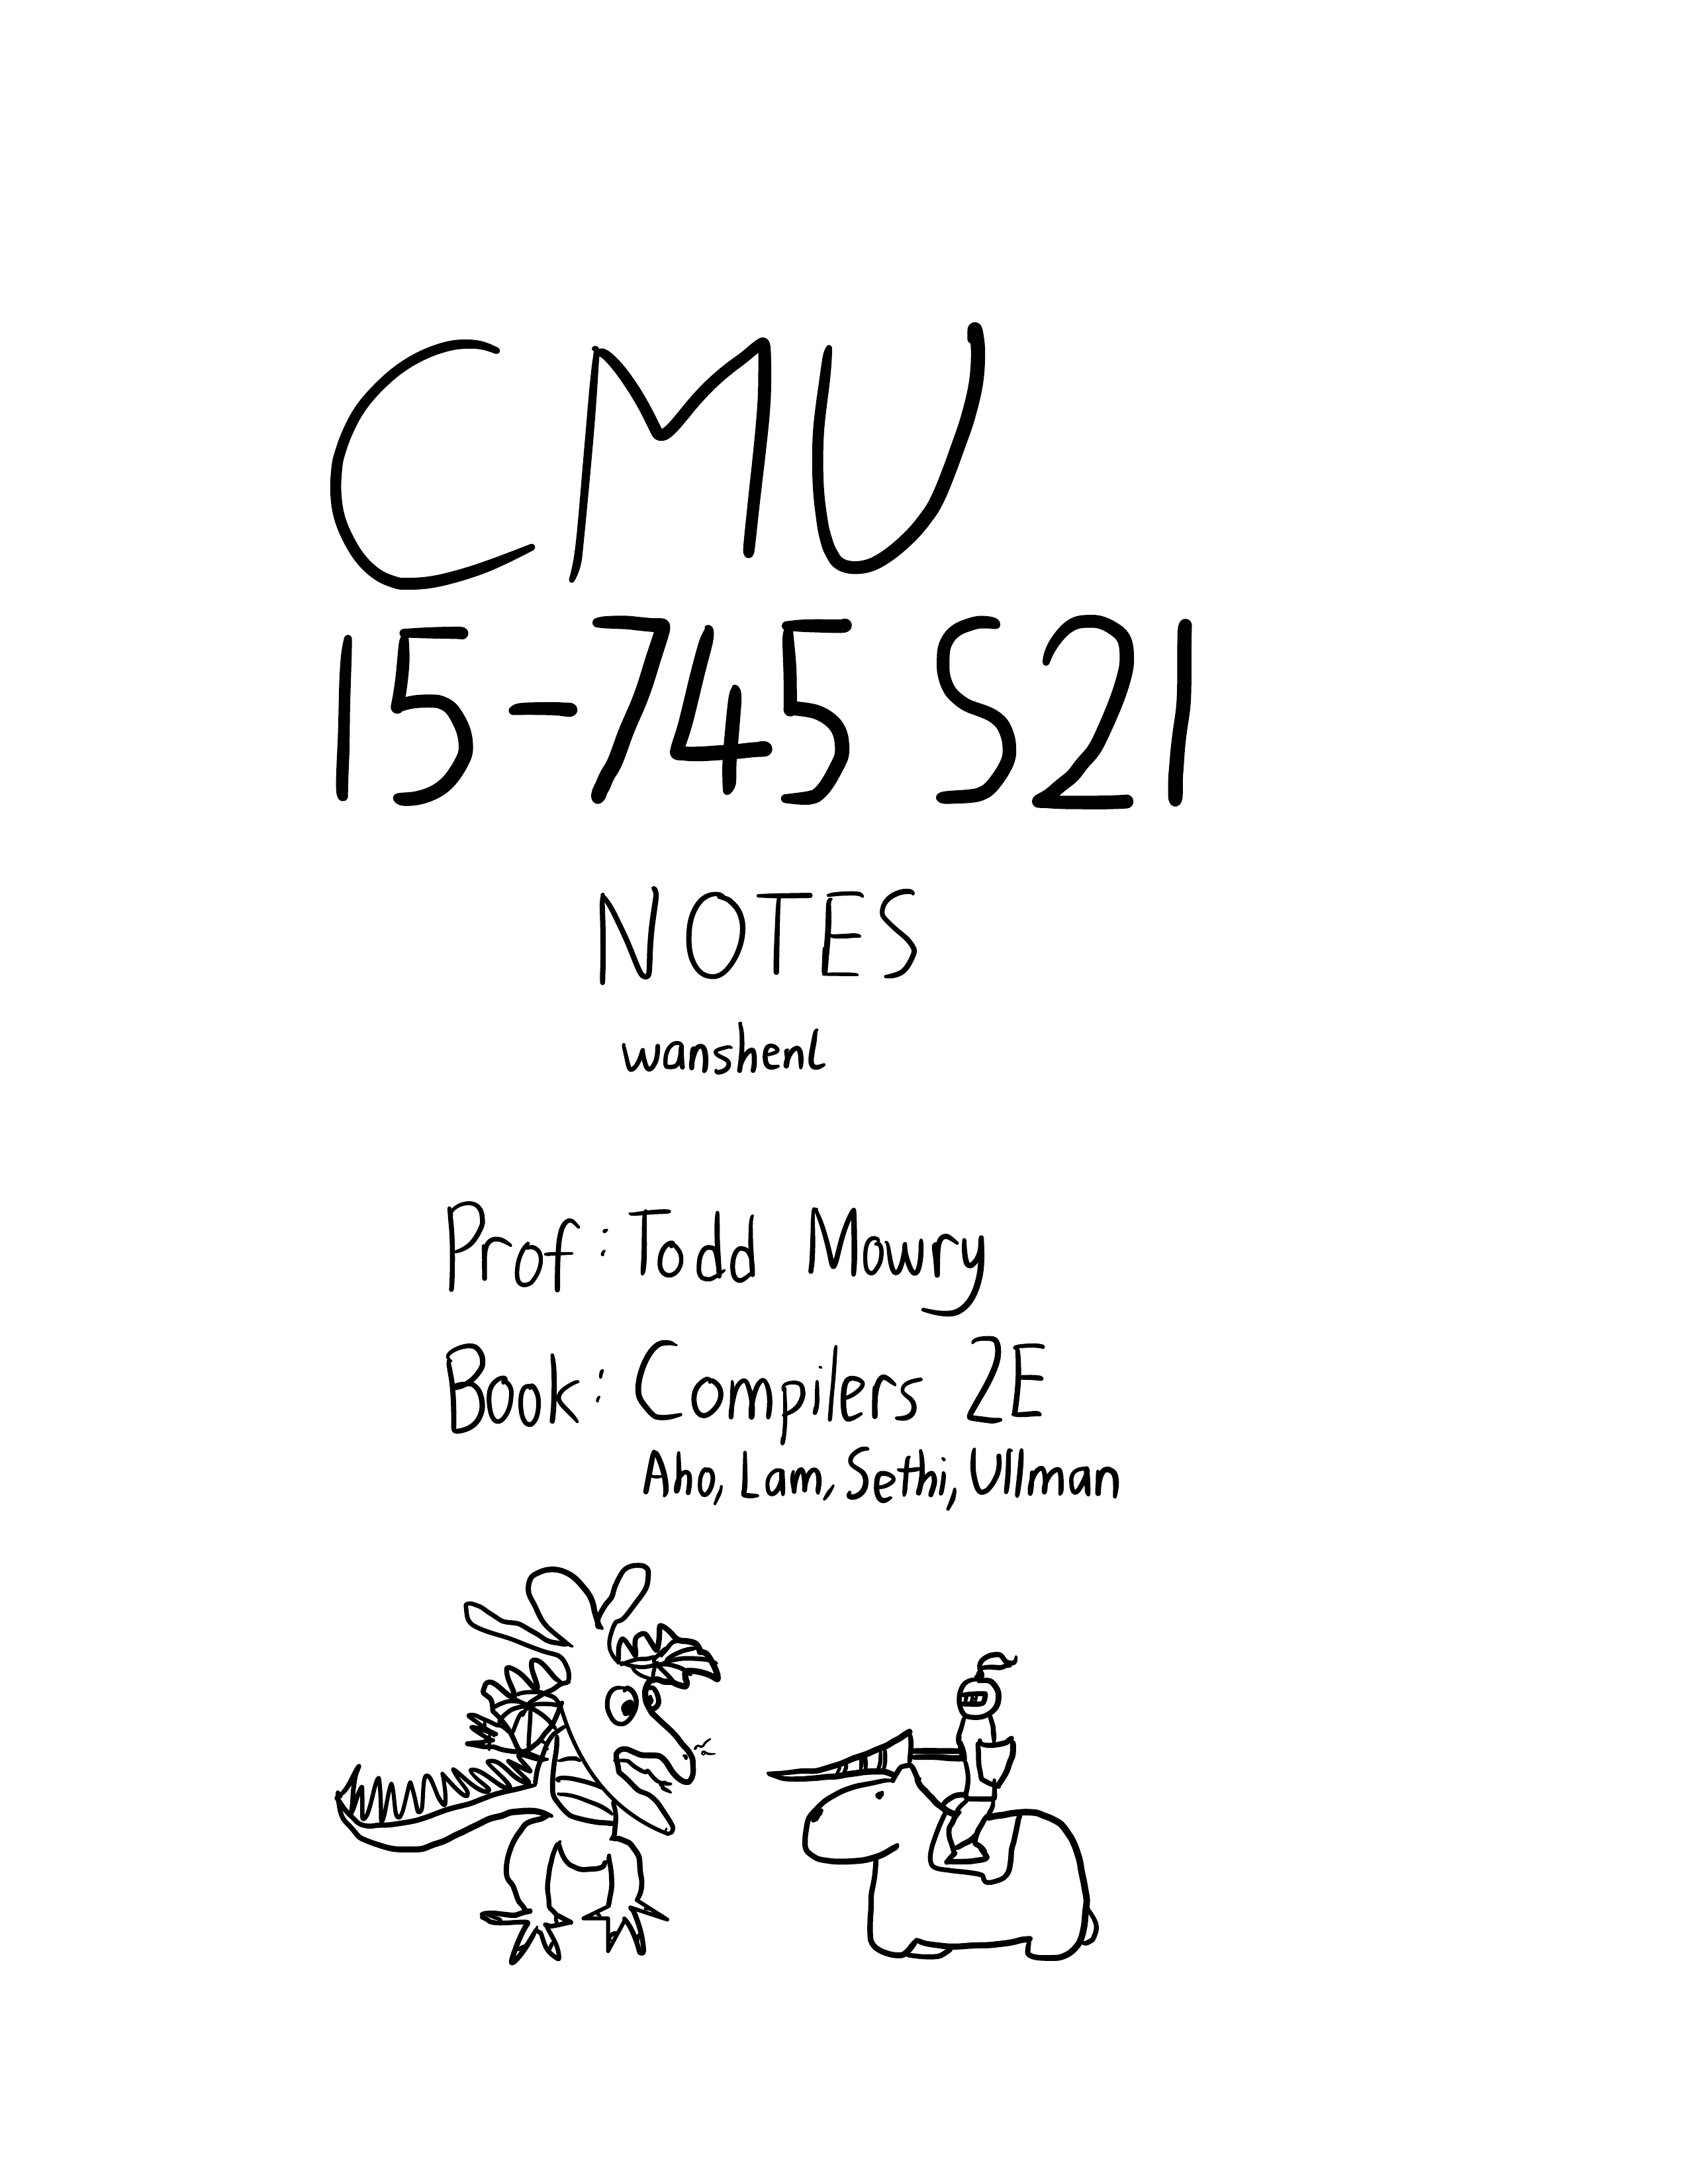 CMU
15-745 S21
NOTES
wanshenl
Prof: Todd Mowry
Book: Compilers 2E
Aho, Lam, Sethi, Ullman